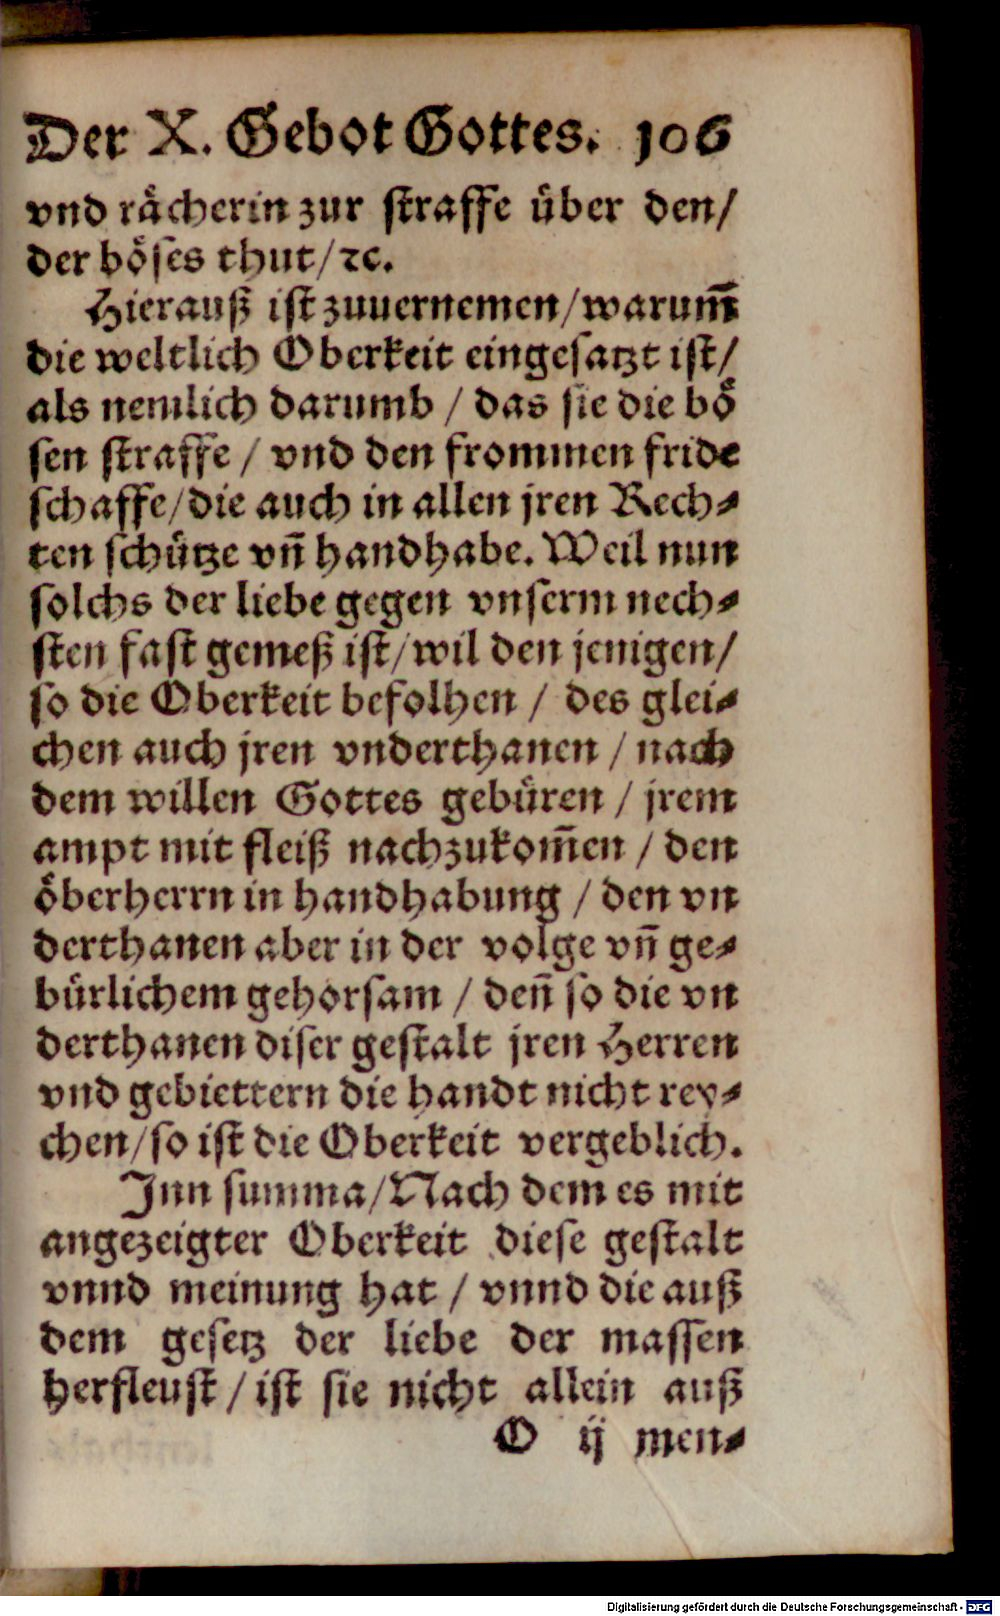 Der X. Gebot Gottes. 106
vnd raͤcherin zur ſtraffe uͤber den/
der boͤſes thut/ ꝛc.
Hierauß iſt zuuernemen/ warum̄
die weltlich Oberkeit eingeſatzt iſt/
als nemlich darumb / das ſie die boͤ
ſen ſtraffe / vnd den frommen fride
ſchaffe/ die auch in allen jren Rech⸗
ten ſchuͤtze vn̄ handhabe. Weil nun
ſolchs der liebe gegen vnſerm nech⸗
ſten faſt gemeß iſt/ wil den jenigen/
ſo die Oberkeit befolhen / des glei⸗
chen auch jren vnderthanen / nach
dem willen Gottes gebuͤren / jrem
ampt mit fleiß nachzukom̄en / den
oͤberherrn in handhabung / den vn
derthanen aber in der volge vn̄ ge⸗
buͤrlichem gehorſam / den̄ ſo die vn
derthanen diſer geſtalt jren Herren
vnd gebiettern die handt nicht rey⸗
chen/ ſo iſt die Oberkeit vergeblich.
Inn ſumma/ Nach dem es mit
angezeigter Oberkeit dieſe geſtalt
vnnd meinung hat / vnnd die auß
dem geſetz der liebe der maſſen
herfleuſt / iſt ſie nicht allein auß
O ij men⸗
Digitalisierung gefördert durch die Deutsche Forschungsgemeinschaft - DFG